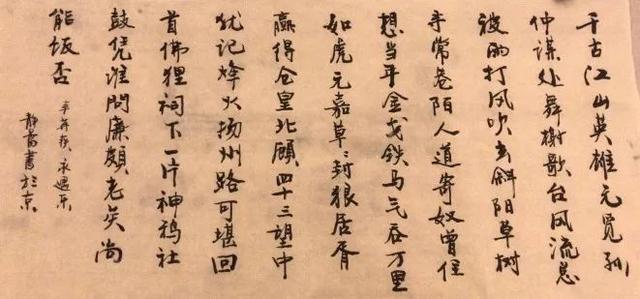 千古江山英雄无觅孙
仲谋处舞榭歌台风流总
被雨打风吹去斜阳草树
寻常巷陌人道寄奴曾住
想当年金戈铁马气吞万里
如虎元嘉草〻封狼居胥
赢得仓皇北顾四十三望中
犹记烽火扬州路可堪回
首佛狸祠下一片神鸦社
鼓凭谁问廉颇老矣尚
能饭否
辛弃疾 永遇乐
静书於京